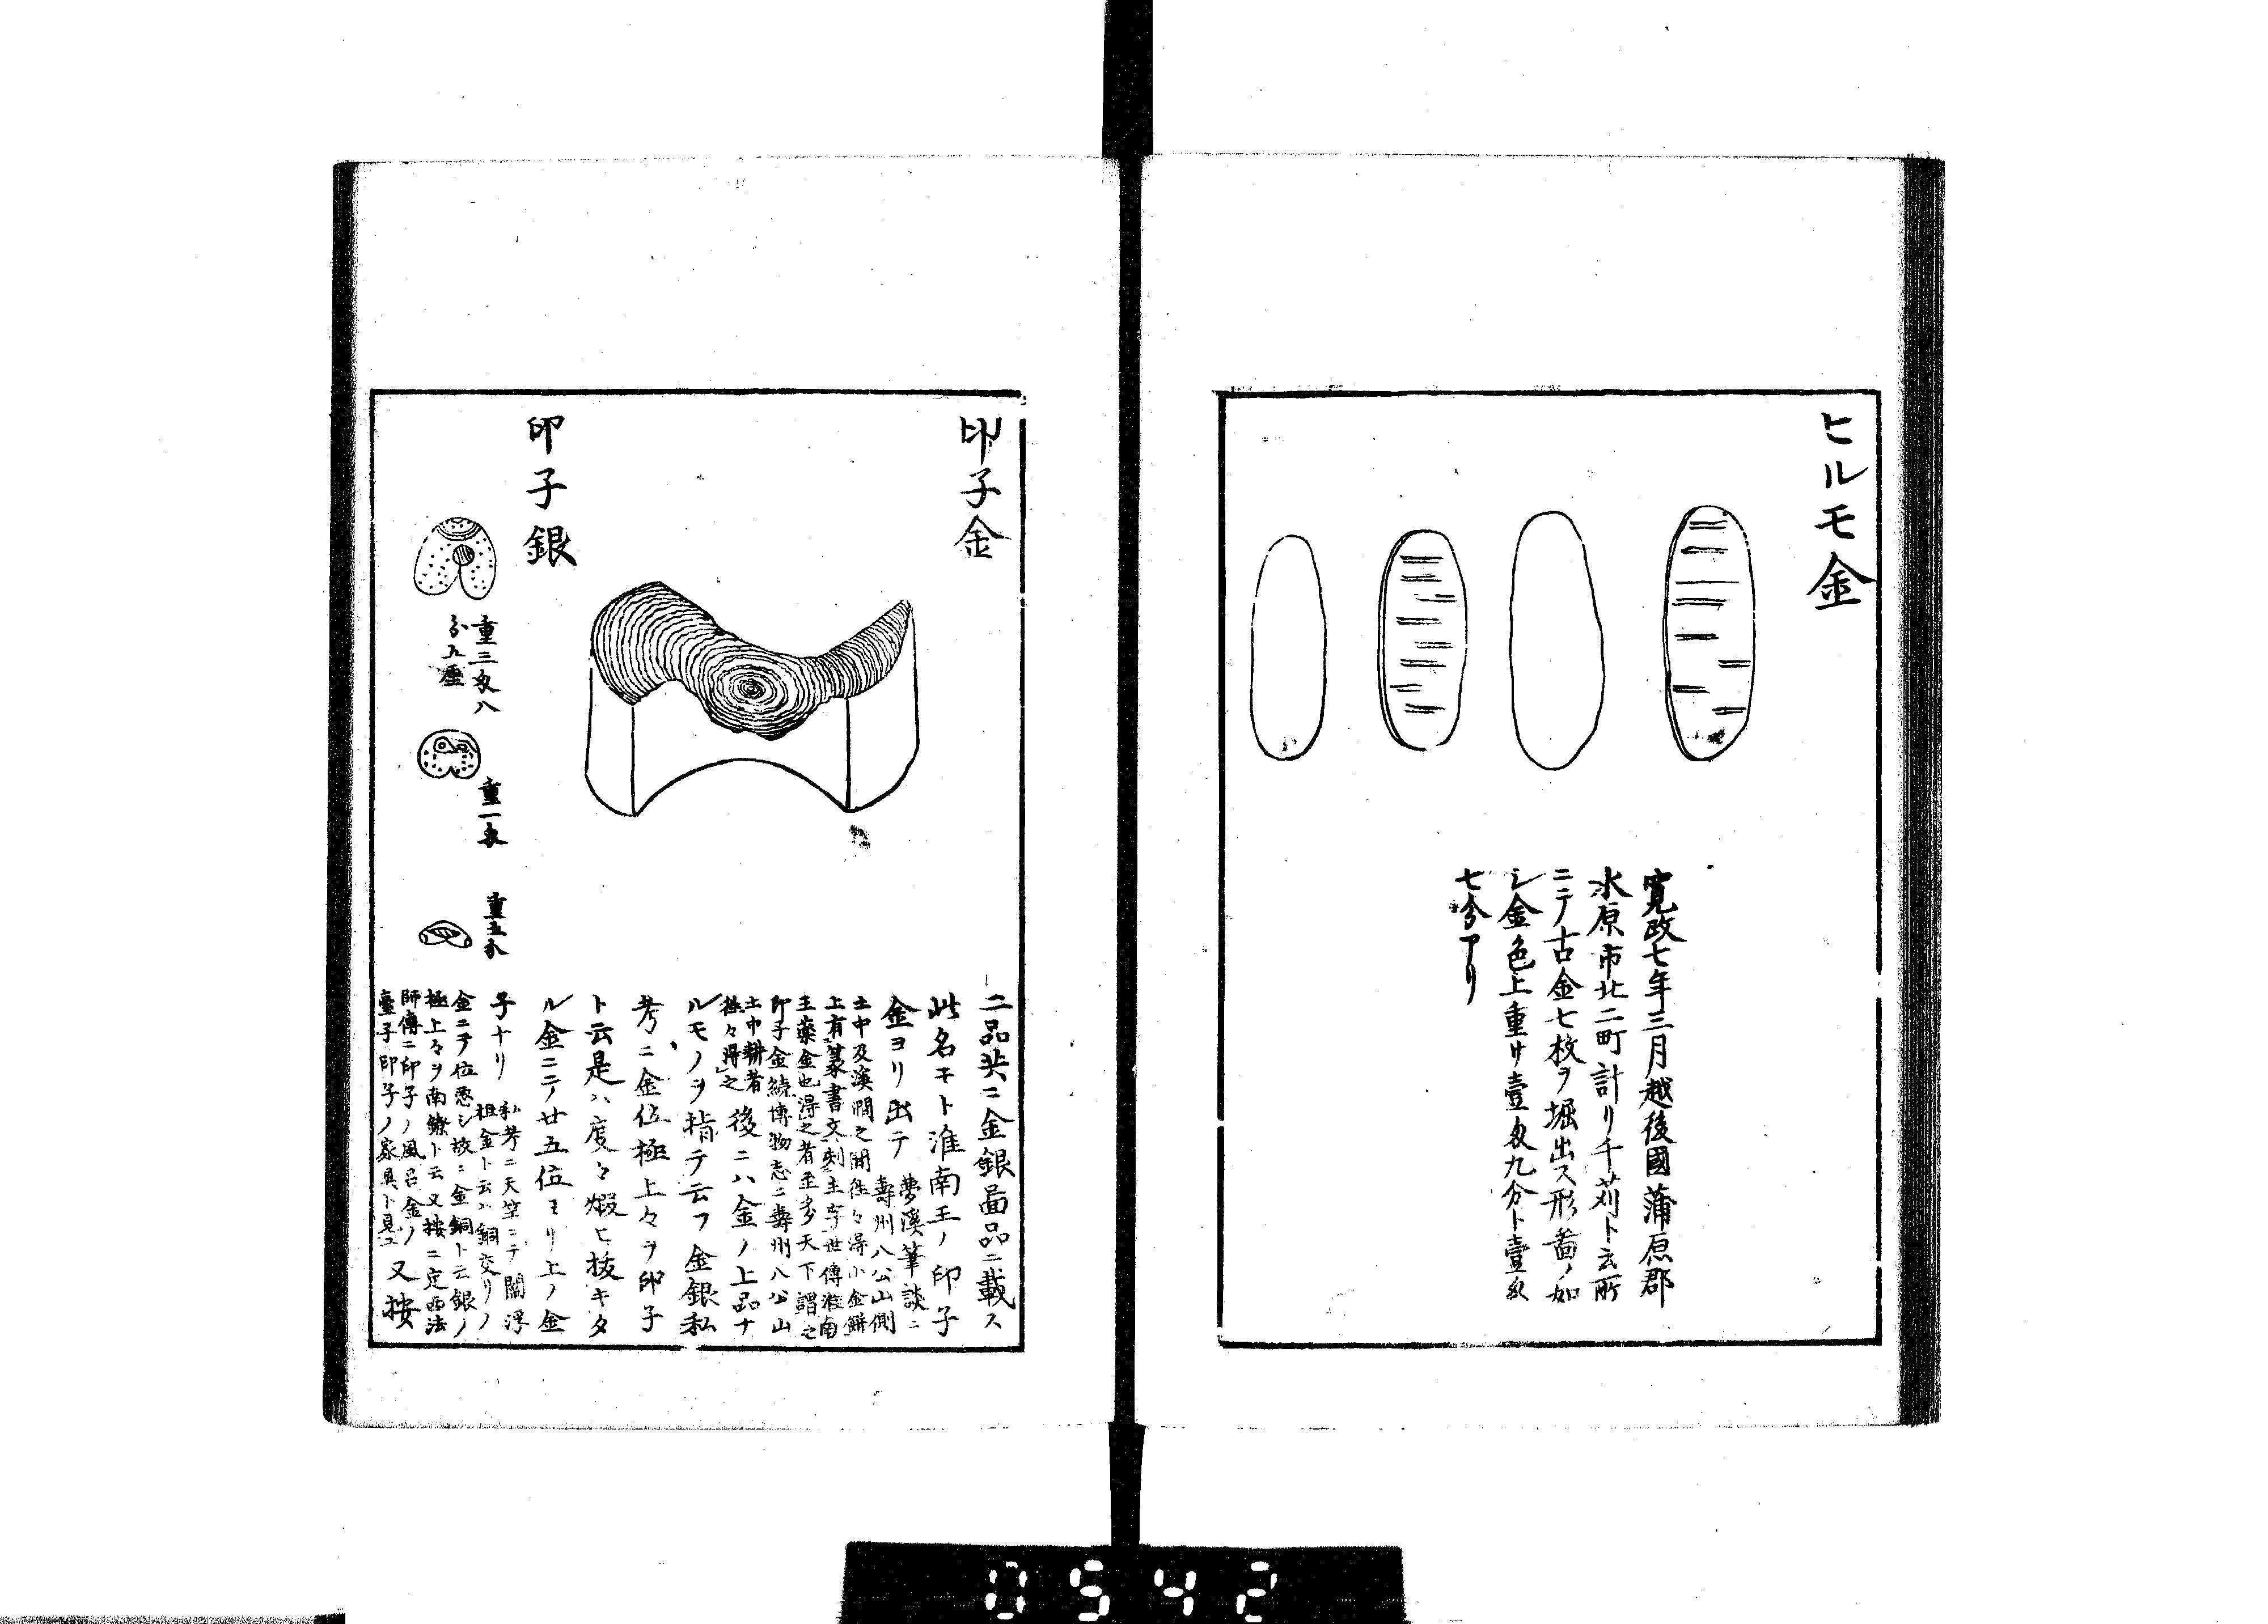 ヒルモ金
寛政七年三月越後國蒲原郡
水原市北二町計リ千苅ト云所
ニテ古金七枚ヲ堀出ス形啚ノ如
シ金色上重サ壹匁九分ト壹匁
七分アリ
印子金
二品共ニ金銀啚品ニ載ス
此名モト淮南王ノ印子
金ヨリ出テ
夢溪筆談ニ
壽州八公山側
土中及溪澗之間往々得小金餅
上有篆書文刻主字世傳淮南
王藥金也得之者至多天下謂之
印子金續博物志ニ壽州八公山
土中耕者
往々得之
後ニハ金ノ上品ナ
ルモノヲ指テ云フ金銀私
考ニ金位極上々ヲ印子
ト云是ハ度々煅ヒ抜キタ
ル金ニテ廿五位ヨリ上ノ金
子ナリ
私考ニ天竺ニテ閻浮
檀金ト云ハ銅交リノ
金ニテ位悪シ故ニ金銅ト云銀ノ
極上々ヲ南鐐ト云又按ニ定西法
師傳ニ印子ノ風呂金ノ
臺子印子ノ家具ト見ユ
又按
印子銀
重三匁八
分五厘
重一匁
重五分
0542